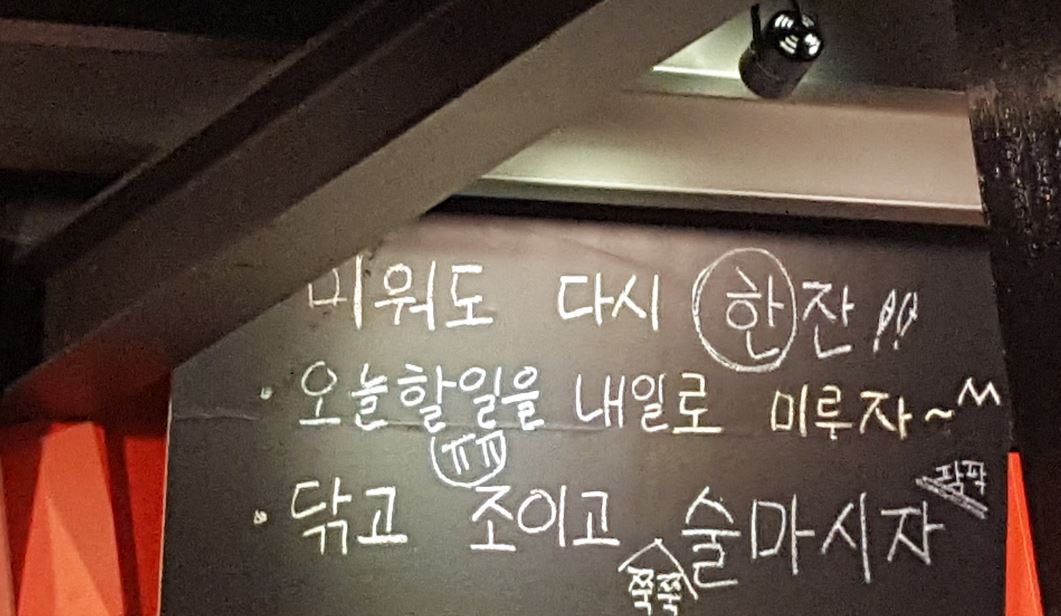 미워도 다시 한잔!!
· 오늘할일을 내일로 미루자~^^
ㅠㅠ
· 닦고 조이고 술마시자
팍팍
쭉쭉